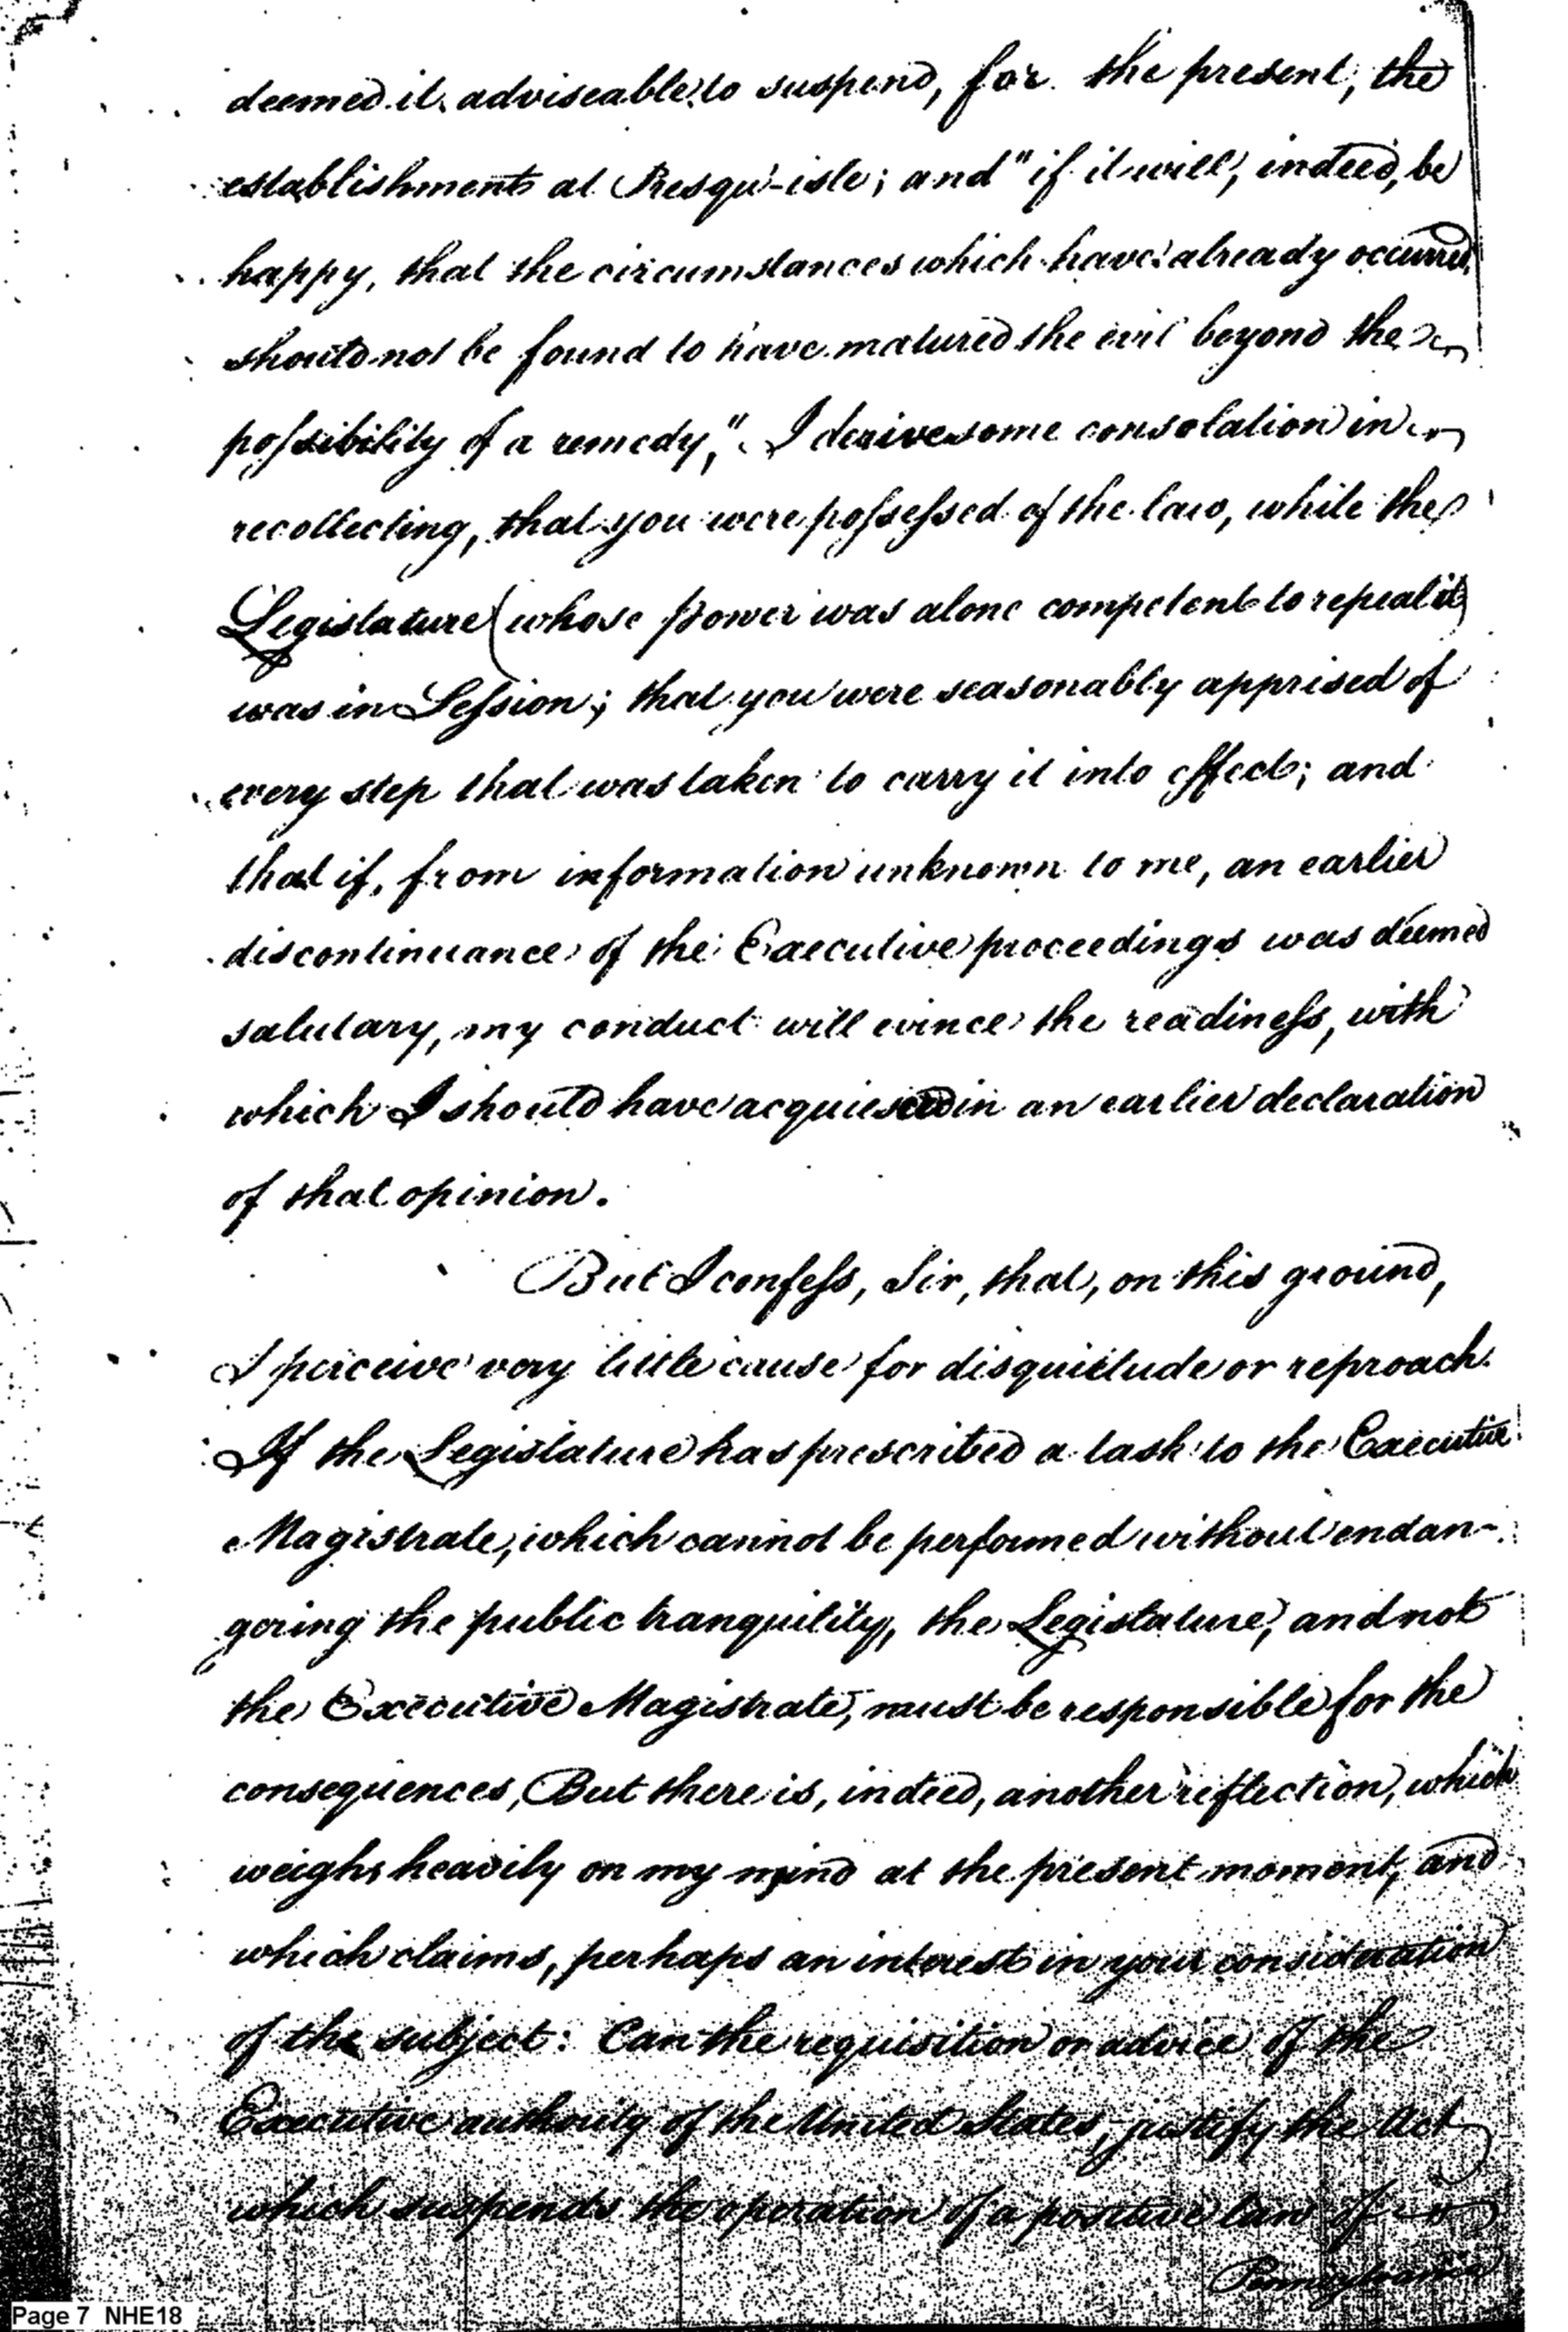 deemed it adviseable to suspend, for the present, the
establishment at Presqu'-isle; and "if it will, indeed, be
happy, that the circumstances which have already occurred
should not be found to have matured the evil beyond the
possibility of a remedy," I derive some consolation in
recollecting, that you were possessed of the law, while the
Legislature (whose power was alone competent to repeal it)
was in Session; that you were seasonably apprised of
every step that was taken to carry it into effect; and
that if, from information unknown to me, an earlier
discontinuance of the Executive proceedings was deemed
salutary, my conduct will evince the readiness, with
which I should have acquiesced in an earlier declaration
of that opinion.
But I confess, Sir, that, on this ground,
I perceive very little cause for disquietude or reproach.
If the Legislature has prescribed a task to the Executive
Magistrate, which cannot be performed without endan-
gering the public tranquility, the Legislature, and not
the Executive Magistrate, must be responsible for the
consequences, But there is, indeed, another reflection, which
weighs heavily on my mind at the present moment, and
which claims, perhaps an interest in your consideration
of the subject: Can the requisition or advice of the
Executive authority of the United States, justify the Act
which suspends the operation of a positive law of
Pennsylvania
Page 7 NHE18